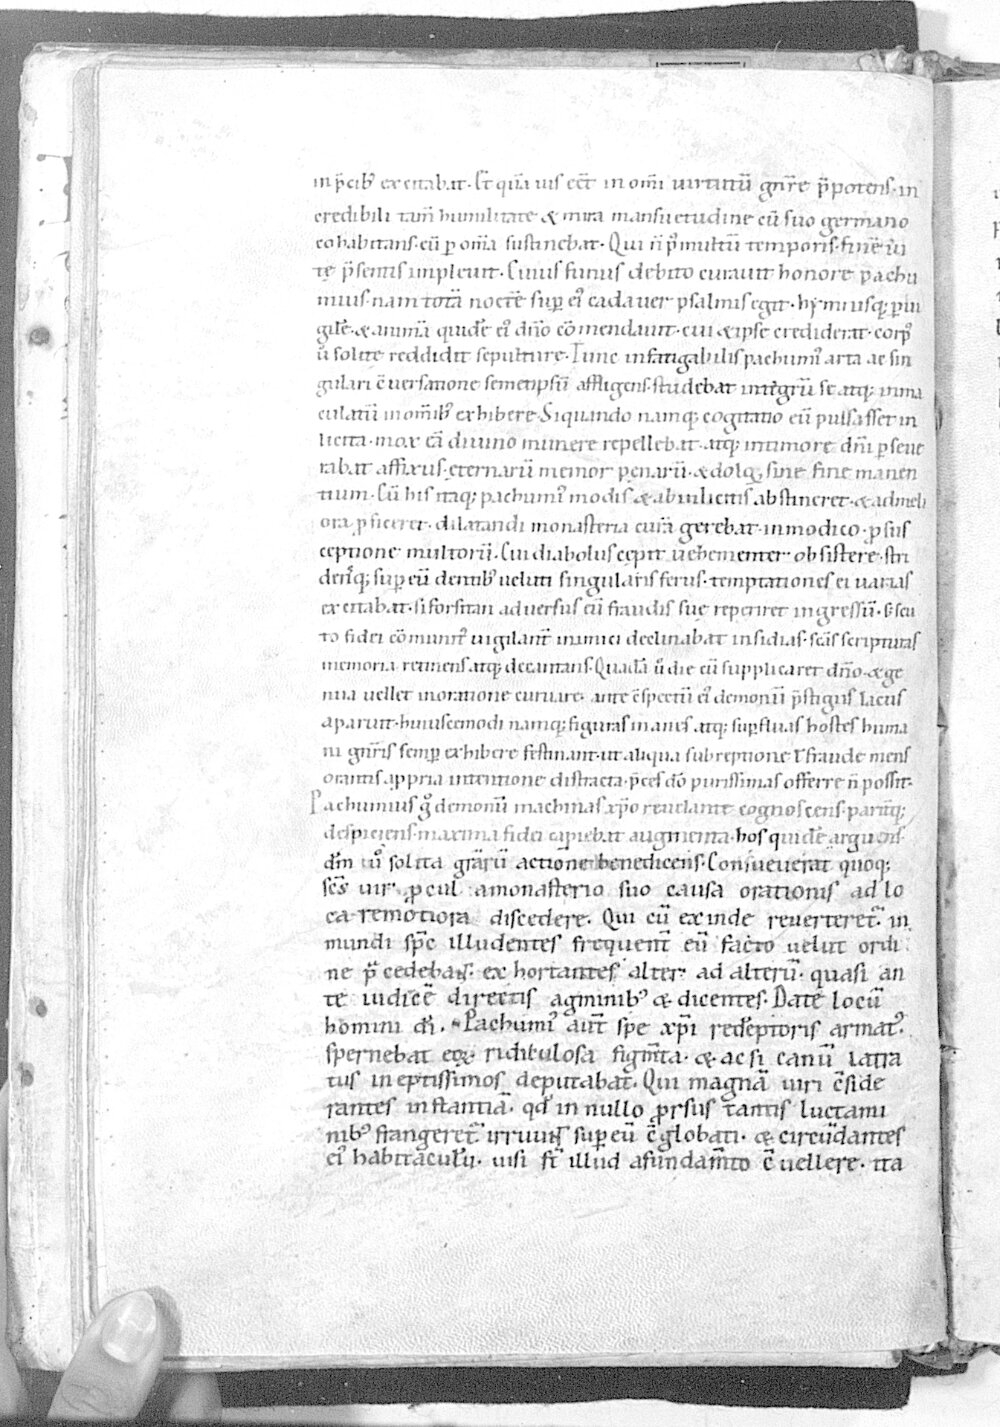 in p̄cib᷒ excitabat. Et qu̅a uis eēt in om̅i uirtutū gn̅re p̄potens. in
credibili tam̅ humilitate & mira mansuetudine cū suo germano
cohabitans. cū ꝑ om̅a sustinebat. Qui n̅ p᷒ multū temporis. fine̅ ui
te p̄sentis impleuit. Cuius funus debito curauit honore pachu
mius. nam tota̅ nocte̅ suꝑ ei᷒ cadauer psalmis egit. hymnisq; ꝑ ui
gile̅. & anima̅ quide̅ ei᷒ dn̅o co̅mendauit. cui & ipse crediderat. corp᷒
u̅ solite reddidit sepulture. Tunc infatigabilis pachumi᷒ arta ac sin
gulari c̅uersatione semetipsū affligens. studebat integrū se atq; inma
culatū in om̅ib᷒ exhibere. Siquando namq; cogitatio eū pulsasset in
licita. mox ea̅ diuino munere repellebat. atq; in timore dn̅i ꝑseue
rabat affixus. eternarū memor penarū. & dolo̅ꝝ sine fine manen
tium. Cū his itaq; pachumi᷒ modis & ab inlicitis abstineret. & ad meli
ora ꝓficeret. dilatandi monasteria cura̅ gerebat. in modico. ꝓ sus
ceptione multorū. Cui diabolus cepit uehementer obsistere. stri
densq; suꝑ eū dentib᷒ ueluti singularis ferus. temptationes ei uarias
excitabat. si forsitan aduersus eū fraudis sue reperiret ingressū. S; scu
to fidei co̅munit᷒ uigilant̅ inimici declinabat insidias. sc̅as scripturas
memoria retinens. atq; decantans. Quada̅ u̅ die cū supplicaret dn̅o. & ge
nua uellet in oratione curuare. ante c̅spectū ei᷒ demonū p̄stigiis lacus
aparuit. huiuscemodi namq; figuras inanes. atq; suꝑfluas hostes huma
ni gn̅ris semꝑ exhibere festinant. ut aliqua subreptione l̅ fraude mens
orantis a ꝓpria intentione distracta. p̄ces do̅ purissimas offerre n̅ possit.
Pachumius g᷒ demonū machinas xp̅o reuelante cognoscens. parit̅q;
despiciens. maxima fidei capiebat augmenta. hos quide̅ arguens.
dn̅m u᷒ solita gr̅arū actione benedicens. Consueuerat quoq;
sc̅s uir. ꝓcul a monasterio suo causa orationis ad lo
ca remotiora discedere. Qui cū exinde reuerteret̅. in
mundi sp̅c illudentes frequent̅ eū facto uelut ordi
ne p̄cedebant. exhortantes alter᷒ ad alterū. quasi an
te iudice̅ directis agminib᷒ & dicentes. Date locū
homini di̅. Pachumi᷒ aut̅ spe xp̅i rede̅ptoris armat᷒.
spernebat eoꝝ ridiculosa figm̅ta. & ac si canū latra
tus ineptissimos deputabat. Qui magna̅ uiri c̅side
rantes instantia̅. qd̅ in nullo ꝓrsus tantis luctami
nib᷒ frangeret̅. irruunt suꝑ eū c̅globati. & circūdantes
ei᷒ habitaculū. uisi st̅ illud a fundam̅to c̅uellere. ita